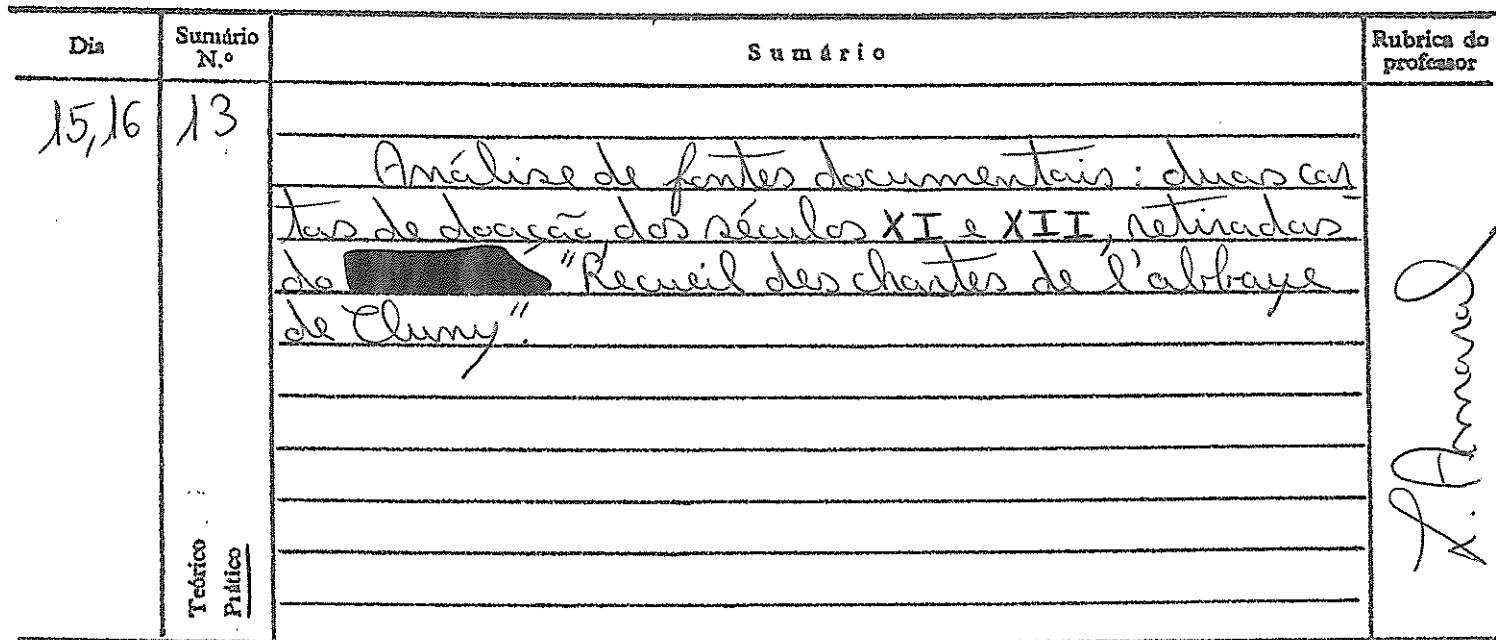 Dia
Sumário N.º
Sumário
Rubrica do professor
15,16
13
Análise de fontes documentais: duas car
tas de doação dos séculos XI e XII, retiradas
do "Recueil des chartes de l'abbaye
de Cluny".
Teórico
Prático
L. Amaral